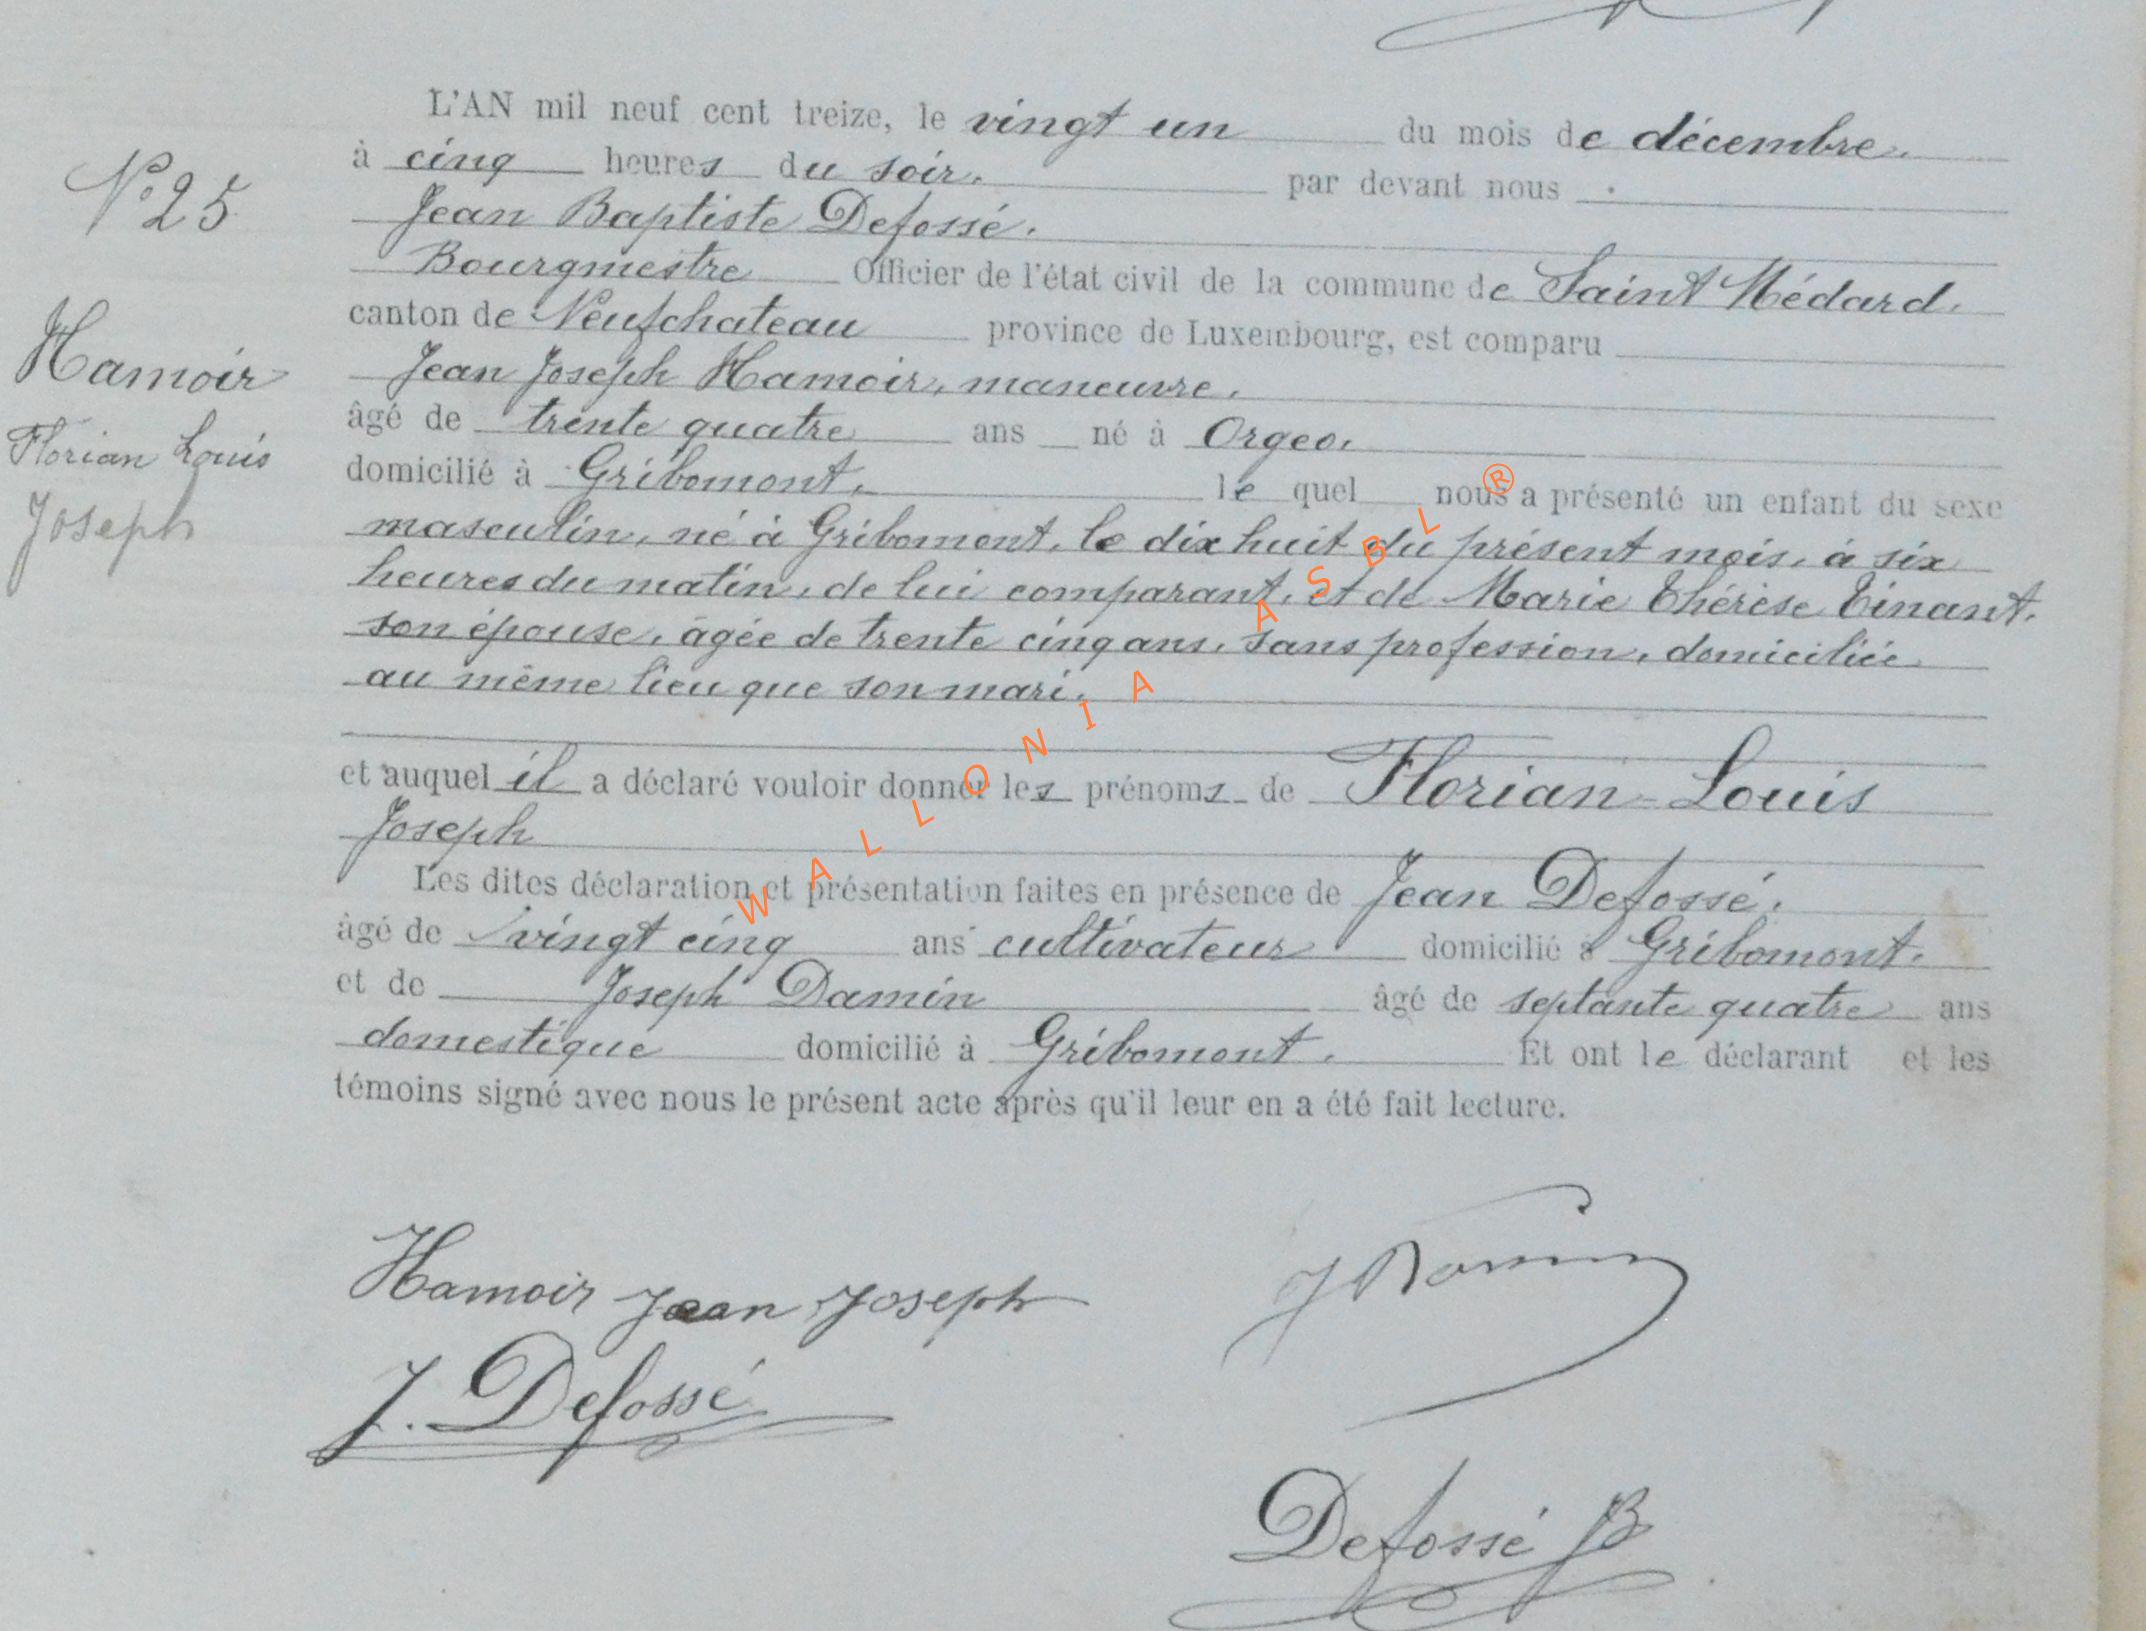 L'AN mil neuf cent treize, le vingt un du mois de décembre.
à cinq heures du soir. par devant nous
Jean Baptiste Defossé.
Bourgmestre Officier de l'état civil de la commune de Saint Médard.
canton de Neufchateau province de Luxembourg, est comparu
Jean Joseph Hamoir, maneuvre.
âgé de trente quatre ans né à Orgeo.
domicilié à Gribomont. le quel nous a présenté un enfant du sexe
masculin, né à Gribomont, le dix huit du présent mois, à six
heures du matin, de lui comparant, et de Marie Thérèse Tinant.
son épouse, âgée de trente cinq ans, sans profession, domiciliée
au même lieu que son mari.
et auquel il a déclaré vouloir donner les prénoms de Florian Louis
Joseph
Les dites déclaration et présentation faites en présence de Jean Defossé.
âgé de vingt cinq ans cultivateur domicilié à Gribomont.
et de Joseph Damin âgé de septante quatre ans
domestique domicilié à Gribomont. Et ont le déclarant et les
témoins signé avec nous le présent acte après qu'il leur en a été fait lecture.
N° 25
Hamoir
Florian Louis
Joseph
Hamoir Jean Joseph
J. Defossé
Defossé JB
WALLONIA ASBL®